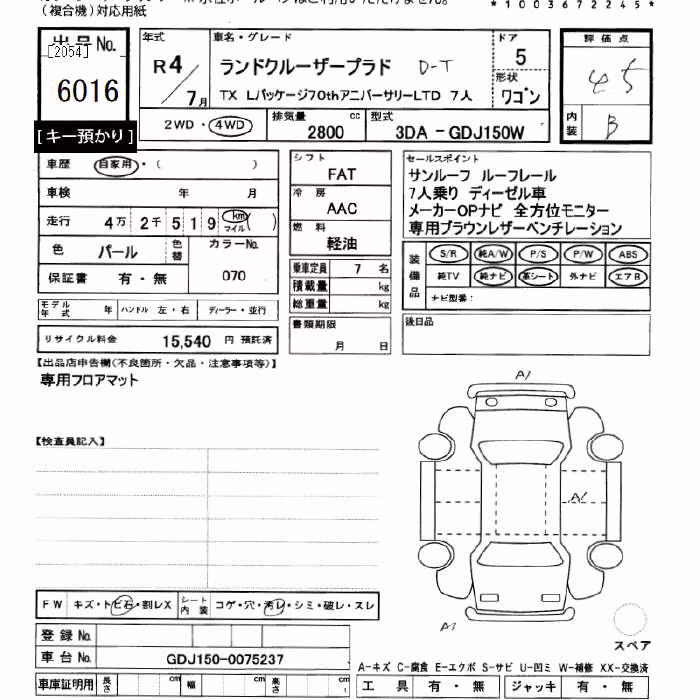 (複合機)対応用紙
*1003672245*
出品No.
[2054]
6016
[キー預かり]
年式
R4/7月
車名・グレード
ランドクルーザープラド D-T
TX Lパッケージ70thアニバーサリーLTD 7人
ドア
5
形状
ワゴン
評価点
45
内装
B
2WD・4WD
排気量
2800 cc
型式
3DA-GDJ150W
車歴 自家用・( )
車検 年 月
走行 4万2千519 km マイル ( )
色 パール 色替
カラーNo.
070
保証書 有・無
モデル年式 年 ハンドル 左・右 ディーラー・並行
リサイクル料金 15,540 円 預託済
シフト
FAT
冷房
AAC
燃料
軽油
乗車定員 7 名
積載量 kg
総重量 kg
書類期限
月 日
セールスポイント
サンルーフ ルーフレール
7人乗り ディーゼル車
メーカーOPナビ 全方位モニター
専用ブラウンレザーベンチレーション
装備品
S/R 純A/W P/S P/W ABS
純TV 純ナビ 革シート 外ナビ エアB
ナビ型番:
後日品
【出品店申告欄(不良箇所・欠品・注意事項等)】
専用フロアマット
A1
A1
A1
【検査員記入】
FW キズ・トビ石・割レX シート内装 コゲ・穴・汚レ・シミ・破レ・スレ
登録No.
車台No. GDJ150-0075237
車庫証明用 長さ cm 幅 cm 高さ cm
スペア
A-キズ C-腐食 E-エクボ S-サビ U-凹ミ W-補修 XX-交換済
工具 有・無 ジャッキ 有・無